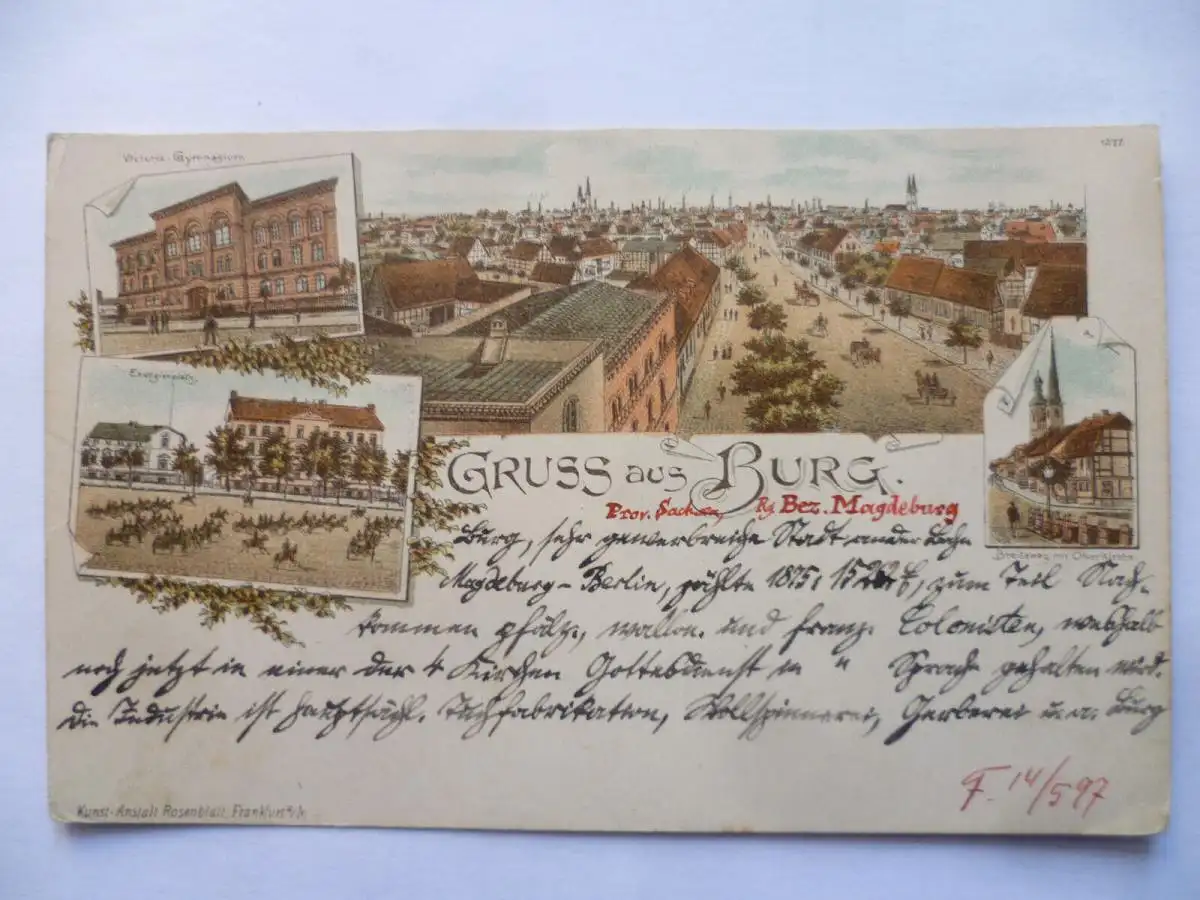 Victoria-Gymnasium
1277
Exerzierplatz
GRUSS aus BURG.
Prov. Sachsen, Rg. Bez. Magdeburg
Breiteweg mit Oberkirche
Burg, sehr gewerbreiche Stadt an der Bahn
Magdeburg-Berlin, zählte 1875: E, zum Teil Nach-
kommen pfälz., wallon. und franz. Colonisten, weshalb
noch jetzt in einer der 4 Kirchen Gottesdienst in " Sprache gehalten wird.
Die Industrie ist hauptsächl. Tuchfabrikation, Wollspinnerei, Gerberei u. a. Burg
F. 14/5 97
Kunst-Anstalt Rosenblatt, Frankfurt a/M.